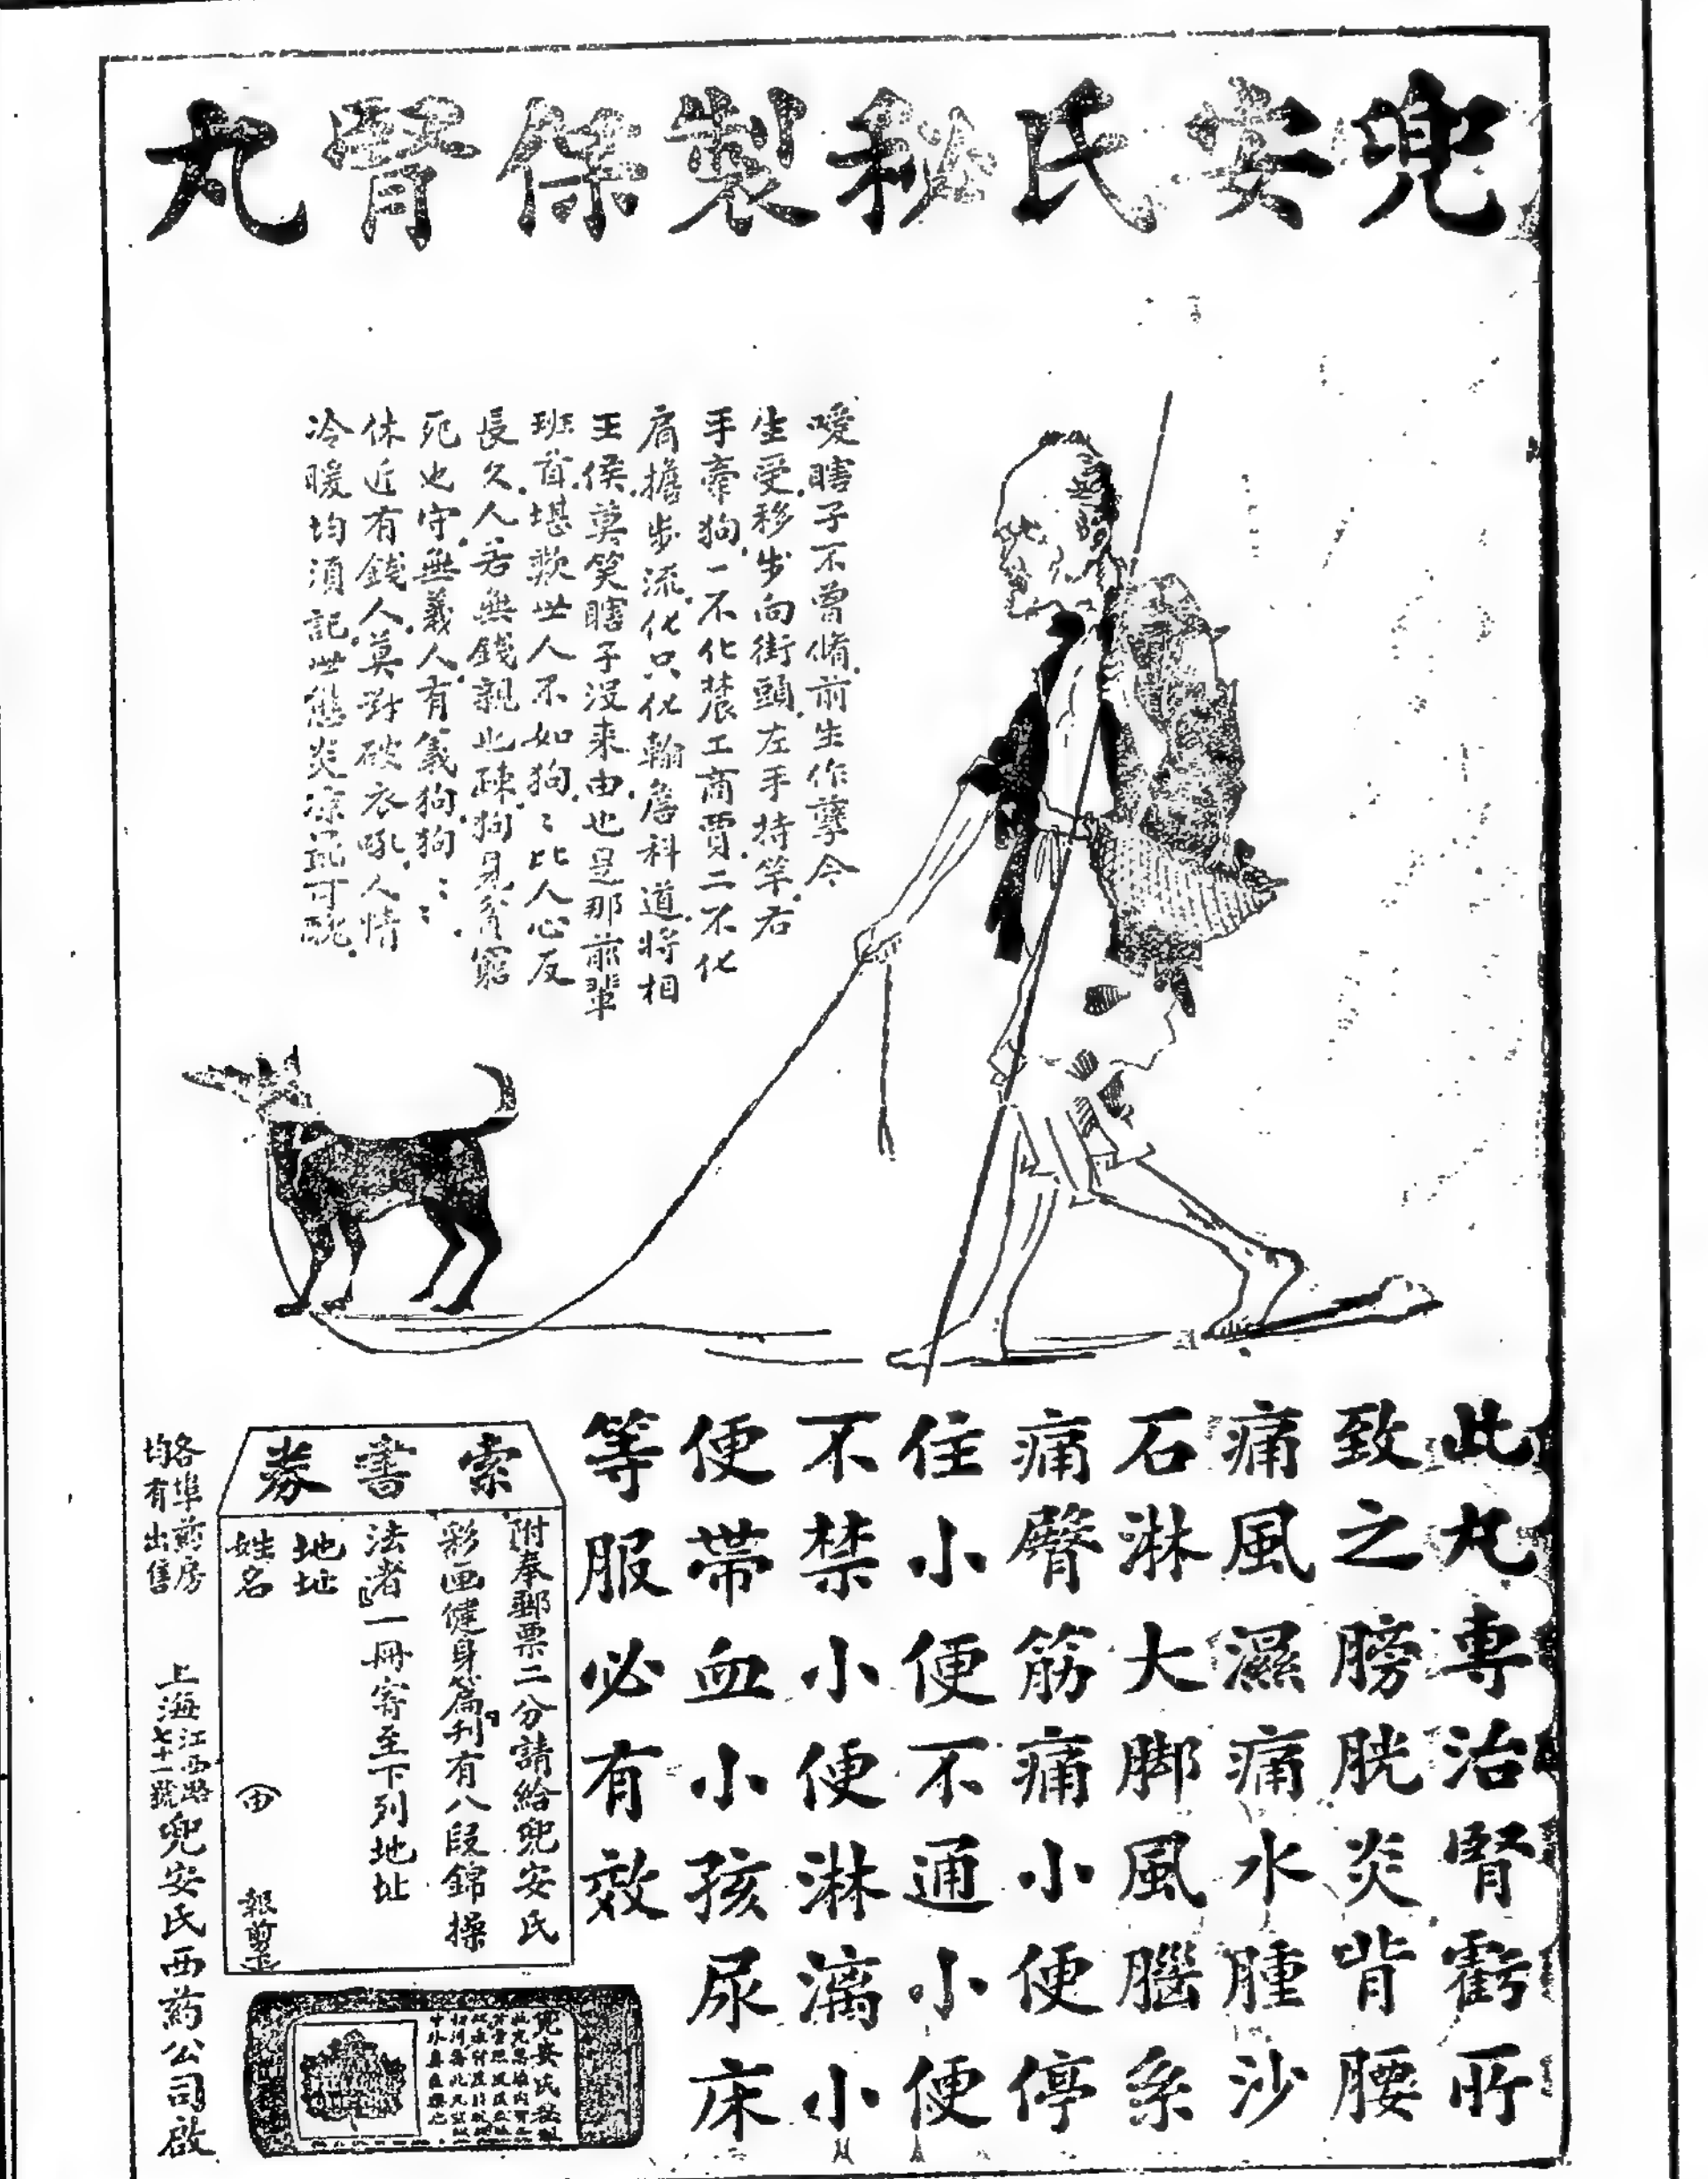 兜安氏秘製保腎丸
嗳瞎子不曾脩前生作孽今
生受移步向街頭左手持竿右
手牽狗一不化農工商賈二不化
肩擔步流化只化翰詹科道將相
王侯莫笑瞎子没来由也是那前輩
班首堪歎世人不如狗〻比人心反
長久人若無錢親也疎狗見貧窮
死也守無義人有義狗狗〻〻
休近有錢人莫對破衣吼人情
冷暖均須記世態炎凉眞可醜
此丸專治腎虧所
致之膀胱炎背腰
痛風濕痛水腫沙
石淋大脚風腦系
痛臀筋痛小便停
住小便不通小便
不禁小便淋漓小
便帶血小孩尿床
等服必有效
索書券
附奉郵票二分請給兜安氏
彩画健身篇刊有八段錦操
法者一冊寄至下列地址
地址
姓名
由 報剪下
兜安氏秘製
各埠药房
均有出售
上海江西路七十一號兜安氏西药公司啟